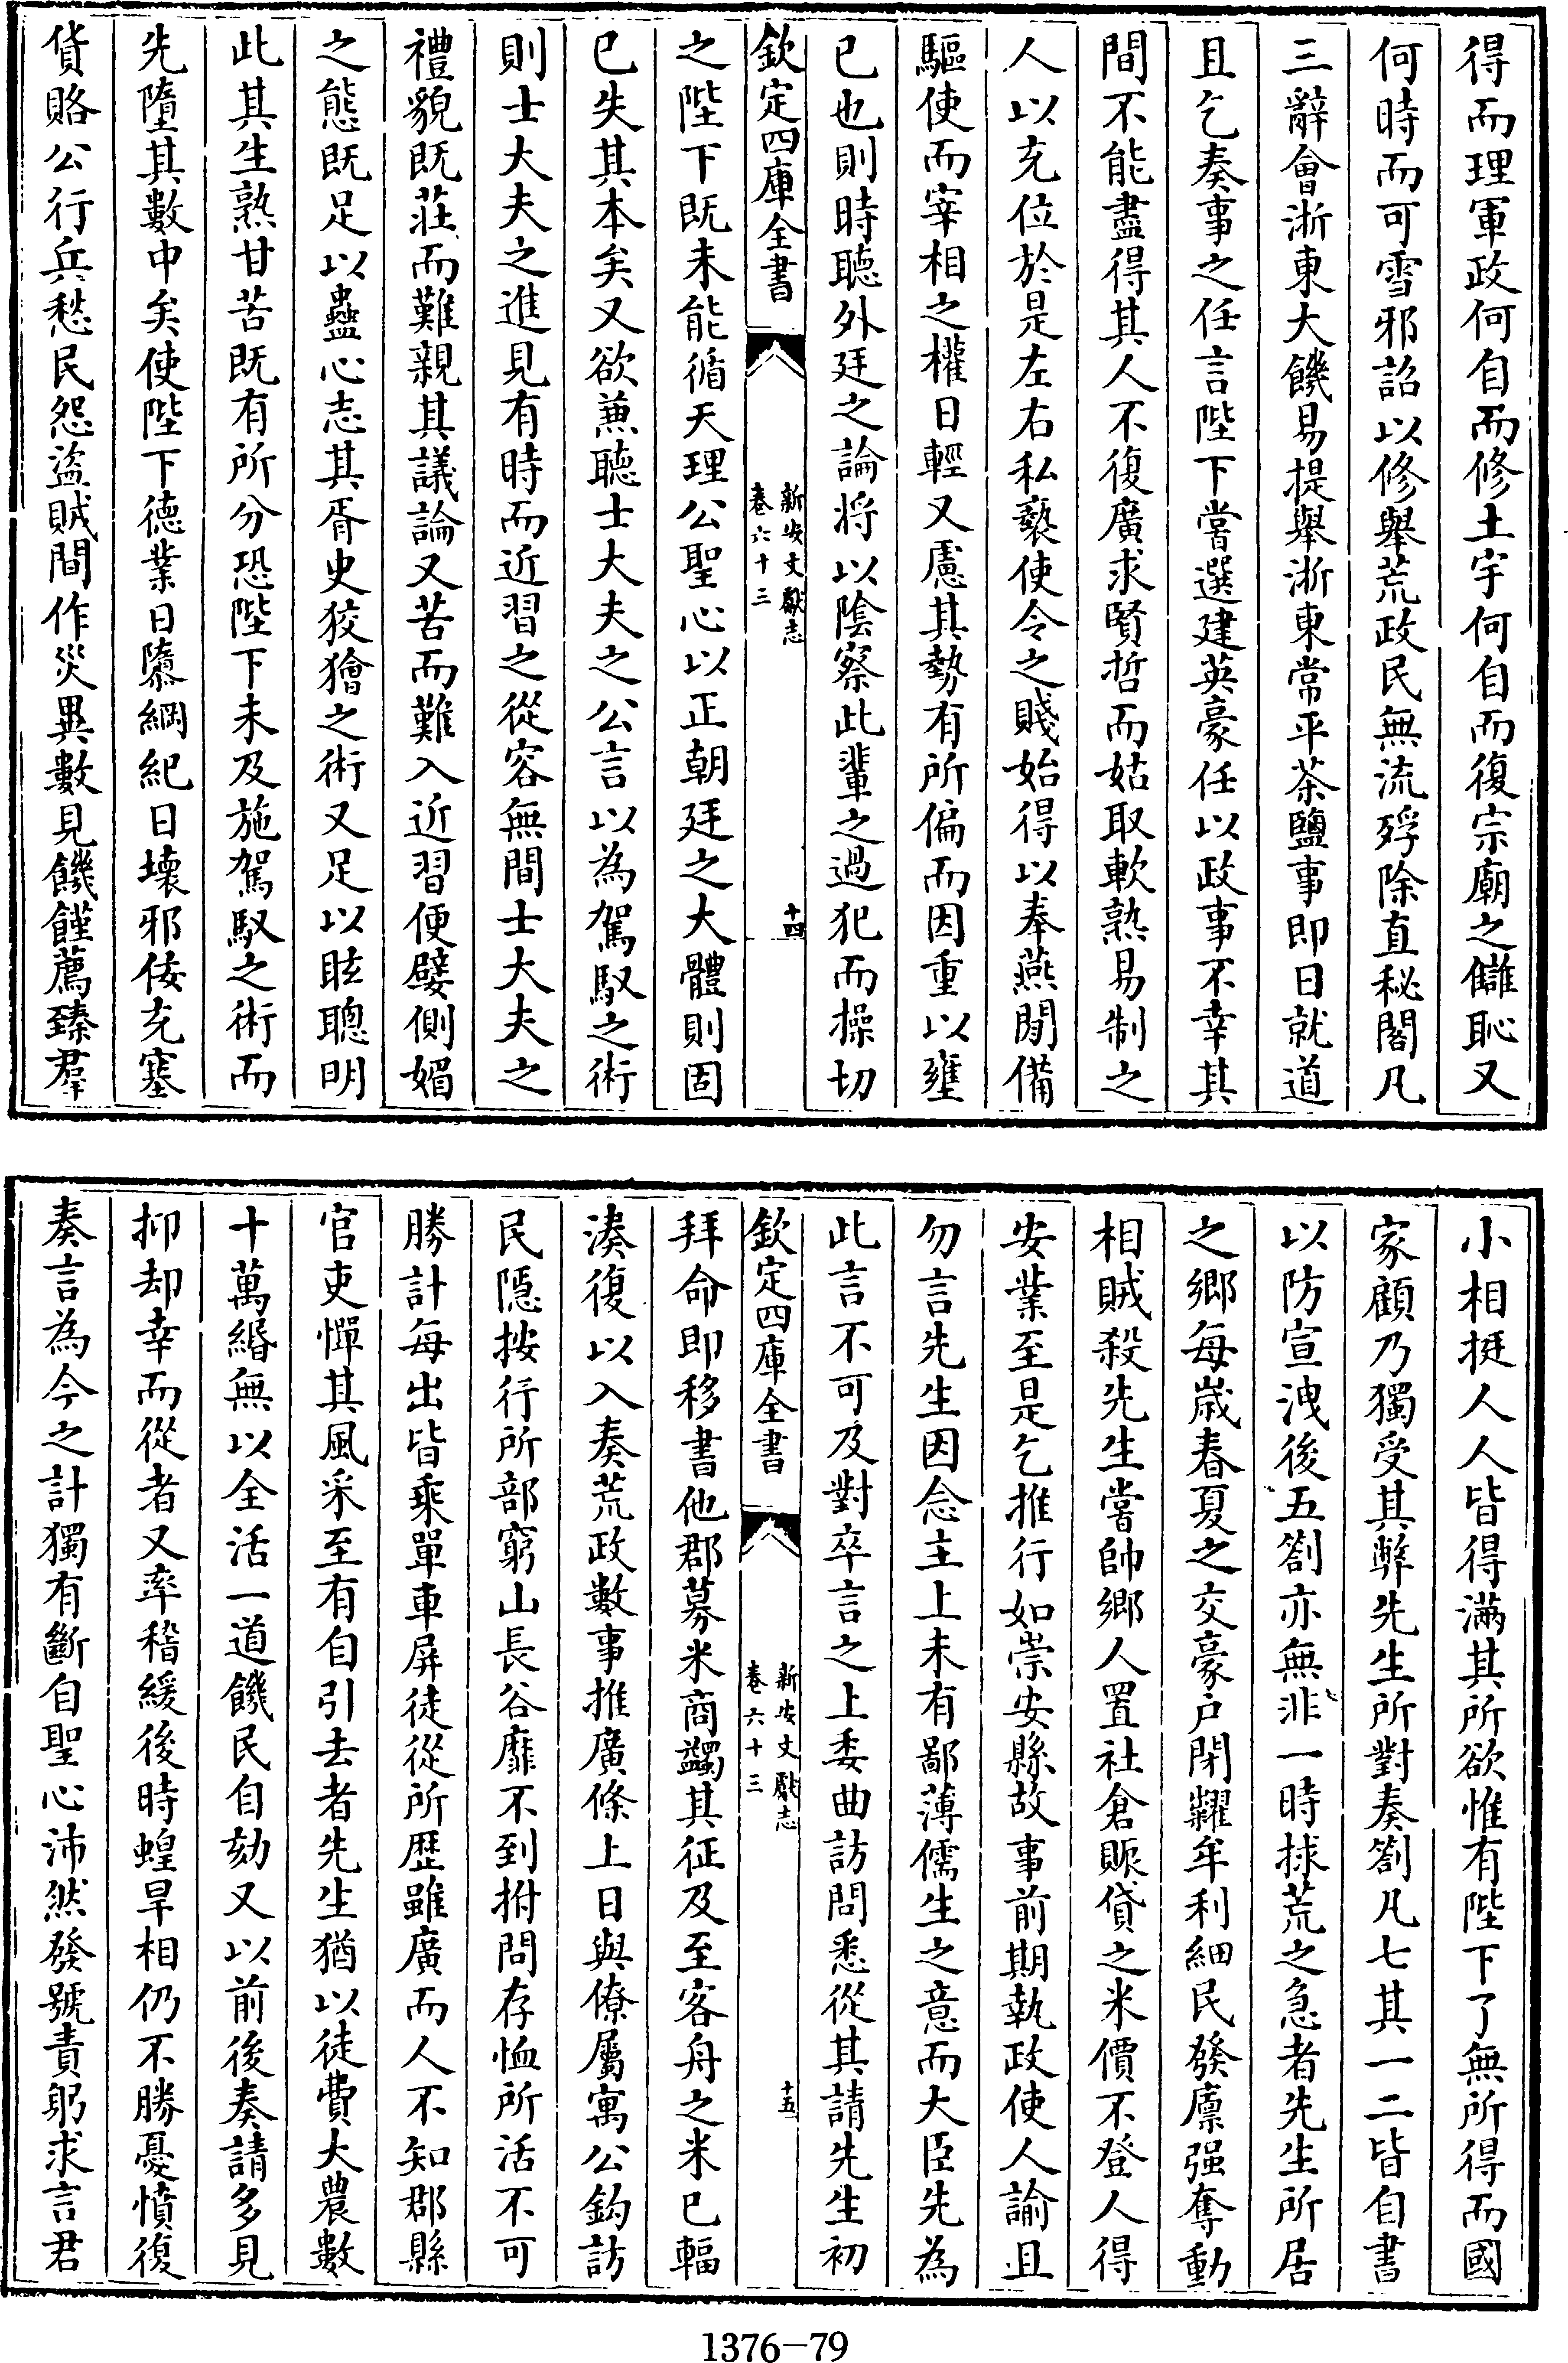 得而理軍政何自而修土宇何自而復宗廟之讎恥又
何時而可雪邪詔以修舉荒政民無流殍除直秘閣凡
三辭會浙東大饑易提舉浙東常平茶鹽事即日就道
且乞奏事之任言陛下嘗選建英豪任以政事不幸其
間不能盡得其人不復廣求賢哲而姑取軟熟易制之
人以充位於是左右私䙝使令之賤始得以奉燕閒備
驅使而宰相之權日輕又慮其勢有所偏而因重以壅
已也則時聽外廷之論将以陰察此輩之過犯而操切
欽定四庫全書
新安文獻志
卷六十三
十四
之陛下既未能循天理公聖心以正朝廷之大體則固
已失其本矣又欲兼聽士大夫之公言以為駕馭之術
則士大夫之進見有時而近習之從容無間士大夫之
禮貌既莊而難親其議論又苦而難入近習便嬖側媚
之態既足以蠱心志其胥史狡獪之術又足以眩聰明
此其生熟甘苦既有所分恐陛下未及施駕馭之術而
先墮其數中矣使陛下徳業日隳綱紀日壊邪佞充塞
貨賂公行兵愁民怨盜賊間作災異數見饑饉薦臻羣
小相挺人人皆得滿其所欲惟有陛下了無所得而國
家顧乃獨受其弊先生所對奏劄凡七其一二皆自書
以防宣洩後五劄亦無非一時捄荒之急者先生所居
之鄉每歳春夏之交豪戸閉糶牟利細民發廪强奪動
相賊殺先生嘗帥鄉人置社倉賑貸之米價不登人得
安業至是乞推行如崇安縣故事前期執政使人諭且
勿言先生因念主上未有鄙薄儒生之意而大臣先為
此言不可及對卒言之上委曲訪問悉從其請先生初
欽定四庫全書
新安文獻志
卷六十三
十五
拜命即移書他郡募米商蠲其征及至客舟之米已輻
湊復以入奏荒政數事推廣條上日與僚屬寓公鈎訪
民隠按行所部窮山長谷靡不到拊問存恤所活不可
勝計每出皆乘單車屏徒從所歴雖廣而人不知郡縣
官吏憚其風采至有自引去者先生猶以徒費大農數
十萬緡無以全活一道饑民自劾又以前後奏請多見
抑却幸而從者又率稽緩後時蝗旱相仍不勝憂憤復
奏言為今之計獨有斷自聖心沛然發號責躬求言君
1376-79